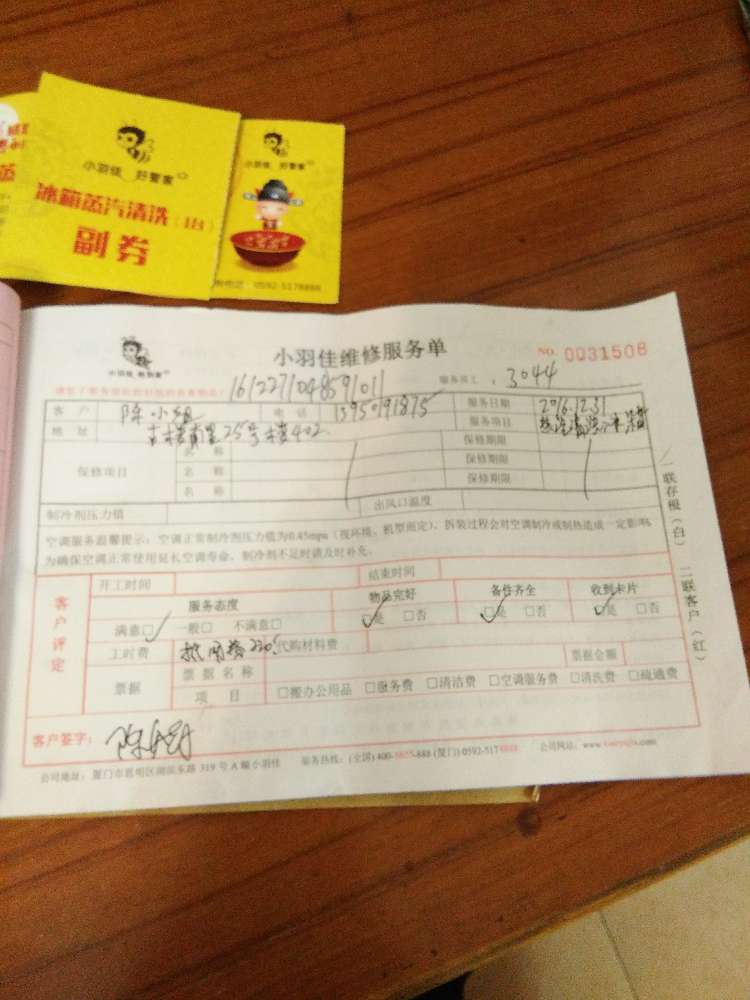 小羽佳 好管家
冰箱蒸汽清洗(1台)
副券
小羽佳 好管家
0592-5178888
小羽佳 好管家
小羽佳维修服务单
NO. 0031508
1612271048591011
服务员工：3044
客户 陈小姐 电话 13950191875 服务日期 2016.12.31
地址 古楼南里25号楼402 服务项目
保修项目 名称 保修期限
名称 保修期限
名称 保修期限
制冷剂压力值 出风口温度
空调服务温馨提示：空调正常制冷剂压力值为0.45mpa（视环境、机型而定），拆装过程会对空调制冷或制热造成一定影响，
为确保空调正常使用延长空调寿命，制冷剂不足时请及时补充。
一联存根（白） 二联客户（红）
客户评定
开工时间 结束时间
服务态度 物品完好 备件齐全 收到卡片
满意□ 一般□ 不满意□ □是 □否 □是 □否 □是 □否
工时费 代购材料费
票据 票据名称 票据金额
项目 □搬办公用品 □服务费 □清洁费 □空调服务费 □清洗费 □疏通费
客户签字：
公司地址：厦门市思明区湖滨东路319号A幢小羽佳 服务热线：(全国)400-8855-888 (厦门)0592-5178888 公司网站：www.xiaoyujia.com